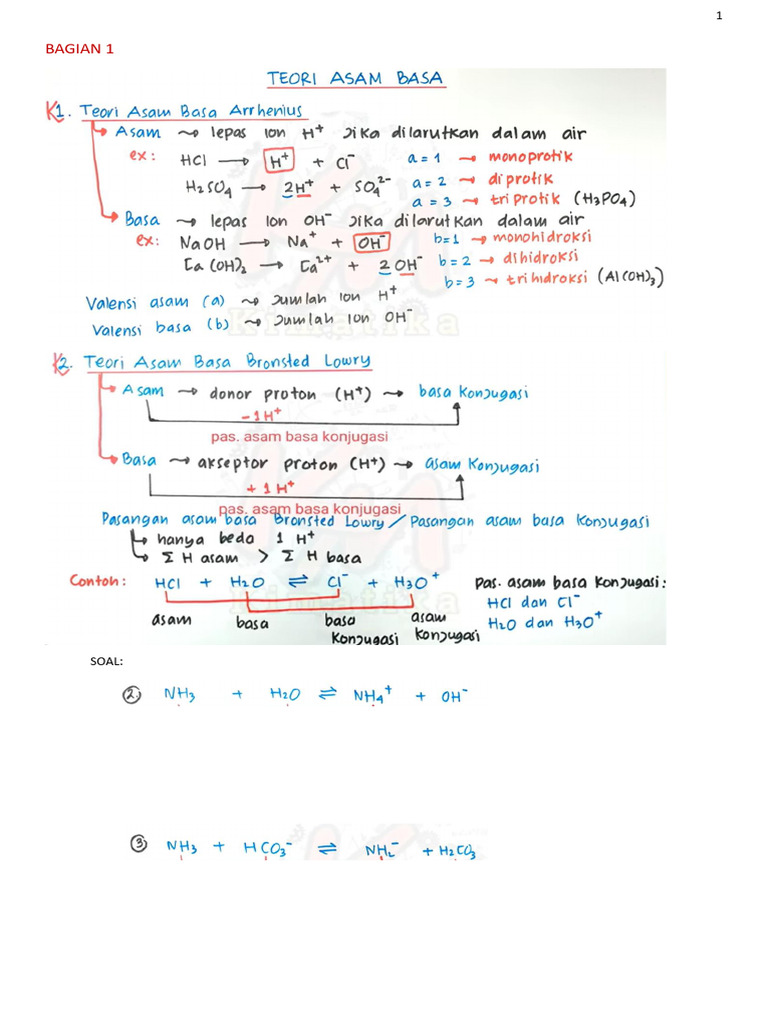 1
BAGIAN 1
TEORI ASAM BASA
K1. Teori Asam Basa Arrhenius
Asam ⤳ lepas ion H⁺ jika dilarutkan dalam air
ex: HCl ⟶ H⁺ + Cl⁻ a = 1 → monoprotik
H₂SO₄ ⟶ 2H⁺ + SO₄²⁻ a = 2 → diprotik
a = 3 ⤳ triprotik (H₃PO₄)
Basa ⤳ lepas ion OH⁻ jika dilarutkan dalam air
ex: NaOH ⟶ Na⁺ + OH⁻ b=1 → monohidroksi
Ca(OH)₂ ⟶ Ca²⁺ + 2OH⁻ b = 2 → dihidroksi
b = 3 ⤳ trihidroksi (Al(OH)₃)
Valensi asam (a) ⤳ Jumlah ion H⁺
Valensi basa (b) ⤳ Jumlah ion OH⁻
Kimatika
K2. Teori Asam Basa Bronsted Lowry
Asam → donor proton (H⁺) → basa konjugasi
−1H⁺
pas. asam basa konjugasi
Basa → akseptor proton (H⁺) → asam konjugasi
+1H⁺
pas. asam basa konjugasi
Pasangan asam basa Bronsted Lowry / Pasangan asam basa konjugasi
hanya beda 1 H⁺
Σ H asam > Σ H basa
Contoh: HCl + H₂O ⇌ Cl⁻ + H₃O⁺ pas. asam basa konjugasi:
HCl dan Cl⁻
H₂O dan H₃O⁺
asam basa basa konjugasi asam konjugasi konjugasi
Kimatika
SOAL:
② NH₃ + H₂O ⇌ NH₄⁺ + OH⁻
③ NH₃ + HCO₃⁻ ⇌ NH₂⁻ + H₂CO₃